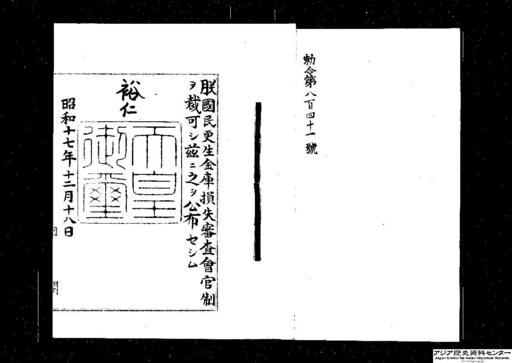 勅令第八百四十一號
朕國民更生金庫損失審査會官制
ヲ裁可シ茲ニ之ヲ公布セシム
裕仁
天皇御璽
昭和十七年十二月十八日
アジア歴史資料センター
Japan Center for Asian Historical Records